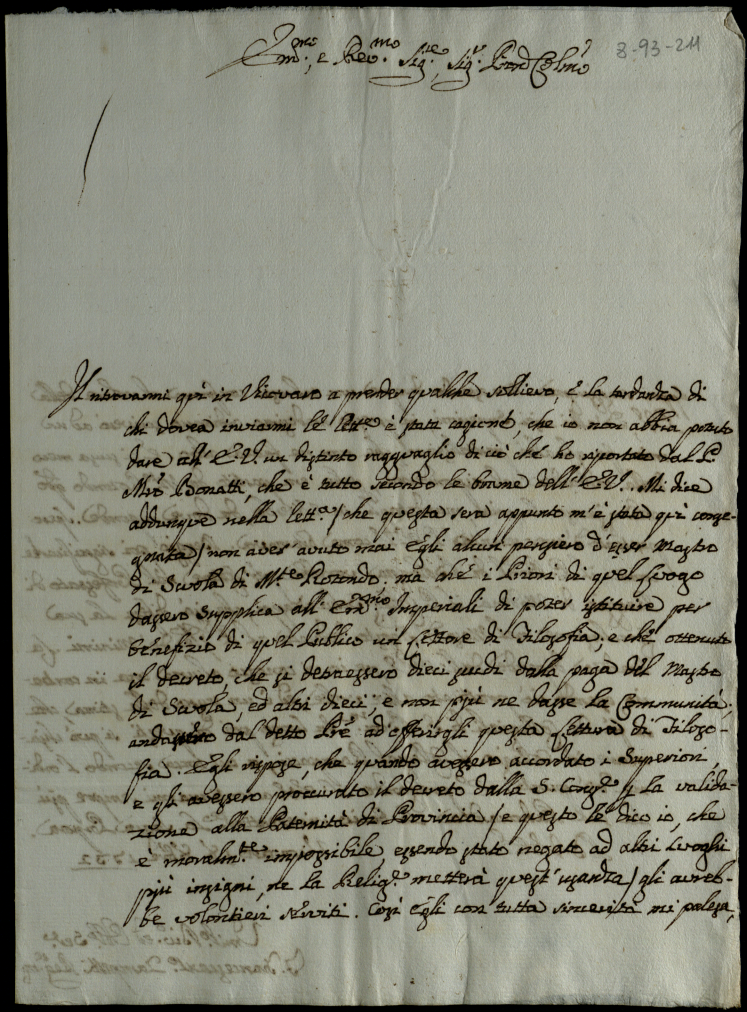 8-93-211
Em.mo, e Rev.mo Sig.re, Sig.r Pron Col.mo
Il ritrovarmi quì in Vicovaro a prender qualche sollievo, e la tardanza di
chi dovea inviarmi le lett.e è stata cagione, che io non abbia potuto
dare all' E.V. un distinto ragguaglio di ciò che ho riportato dal P.
Mro Bonatti, che è tutto secondo le brame dell' E.V.. Mi dice
addunque nella lett.a / che questa sera appunto m'è stata quì conse-
gnata / non aver avuto mai Egli alcun pensiero d'esser Mastro
di Scuola di M.te Rotondo. ma che i Priori di quel Luogo
dassero supplica all' Em.mo Imperiali di poter istituire per
benefizio di quel Publico un Lettore di Filosofia, e che ottenuto
il decreto, che si detraessero dieci scudi dalla paga del Mastro
di Scuola, ed altri dieci, e non più ne dasse la Communità;
andassero dal detto Pre ad offerirgli questa Lettura di Filoso-
fia. Egli rispose, che quando avessero accordato i Superiori,
e gli avessero proccurato il decreto dalla S. Cong.e la valida-
zione alla Paternità di Provincia / e questo le dico io, che
è moralm.te impossibile, essendo stato negato ad altri Luoghi
più insigni, ne la Relig.e metterà quest' usanza / gli avreb-
be volontieri serviti. Così Egli con tutta sincerità mi palesa,